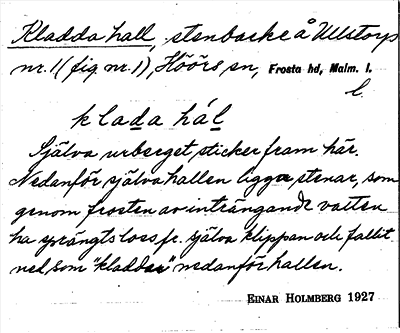 Kladda hall, stenbacke å Ullstorp
nr. 1 (fig nr. 1), Höörs sn, Frosta hd, Malm. l.
l.
klada hál
Själva urberget sticker fram här.
Nedanför själva hallen ligga stenar, som
genom frosten av inträngande vatten
ha sprängts loss fr. själva klippan och fallit
ned som "kladdar" nedanför hallen.
EINAR HOLMBERG 1927